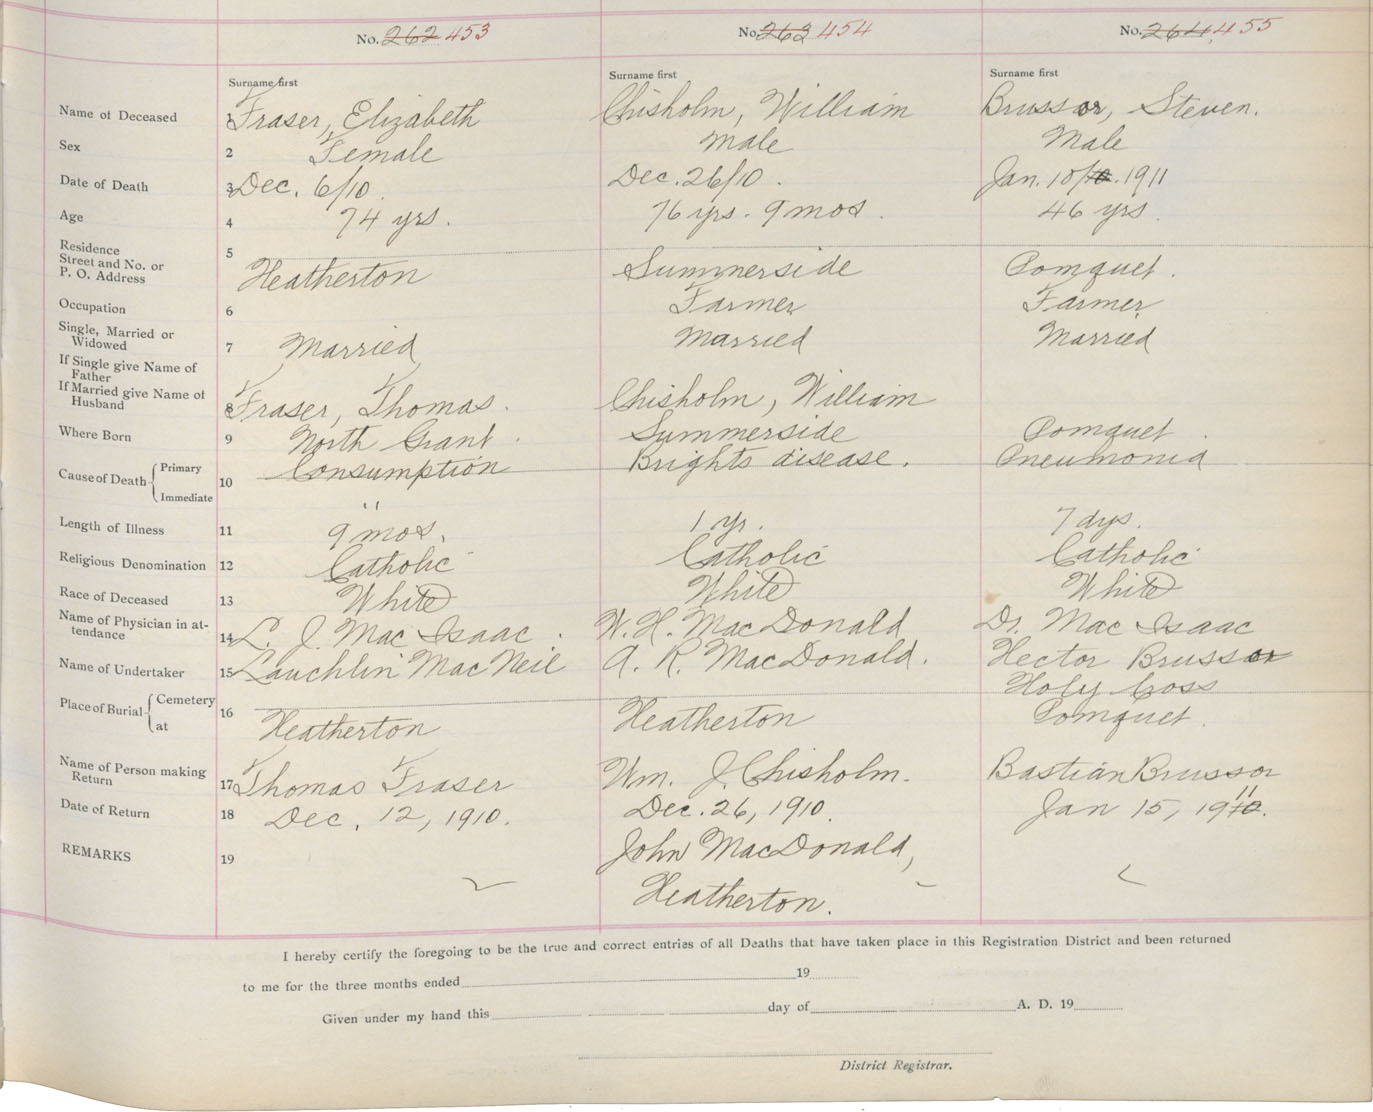 No. 262 453
No. 263 454
No. 264 455
Surname first
Surname first
Surname first
Name of Deceased 1 Fraser, Elizabeth
Chisholm, William
Brussor, Steven.
Sex 2 Female
Male
Male
Date of Death 3 Dec. 6/10
Dec. 26/10.
Jan. 10/10. 1911
Age 4 74 yrs.
76 yrs. 9 mos.
46 yrs.
Residence
Street and No. or
P. O. Address 5 Heatherton
Summerside
Pomquet.
Occupation 6
Farmer
Farmer
Single, Married or
Widowed 7 Married
Married
Married
If Single give Name of
Father
If Married give Name of
Husband 8 Fraser, Thomas.
Chisholm, William
Where Born 9 North Grant.
Summerside
Pomquet.
Cause of Death { Primary 10 Consumption
Brights disease.
Pneumonia
Immediate "
Length of Illness 11 9 mos.
1 yr.
7 dys.
Religious Denomination 12 Catholic
Catholic
Catholic
Race of Deceased 13 White
White
White
Name of Physician in at-
tendance 14 L. J. Mac Isaac.
W. H. MacDonald
Dr. Mac Isaac
Name of Undertaker 15 Lauchlin MacNeil
A. R. MacDonald.
Hector Brussor
Place of Burial { Cemetery
at 16 Heatherton
Heatherton
Holy Cross
Pomquet.
Name of Person making
Return 17 Thomas Fraser
Wm. J. Chisholm.
Bastian Brussor
Date of Return 18 Dec. 12, 1910.
Dec. 26, 1910.
Jan 15, 1910. 11
REMARKS 19
John MacDonald,
Heatherton.
I hereby certify the foregoing to be the true and correct entries of all Deaths that have taken place in this Registration District and been returned
to me for the three months ended 19
Given under my hand this day of A. D. 19
District Registrar.